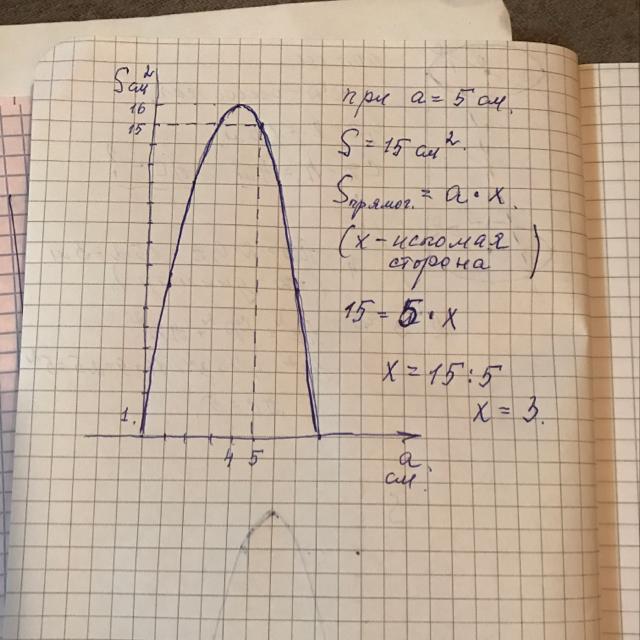 S см²
16
15
1.
4 5
a
см.
при a = 5 см.
S = 15 см².
Sпрямог. = a · x.
(x – искомая
сторона)
15 = 5 · x
x = 15 : 5
x = 3.